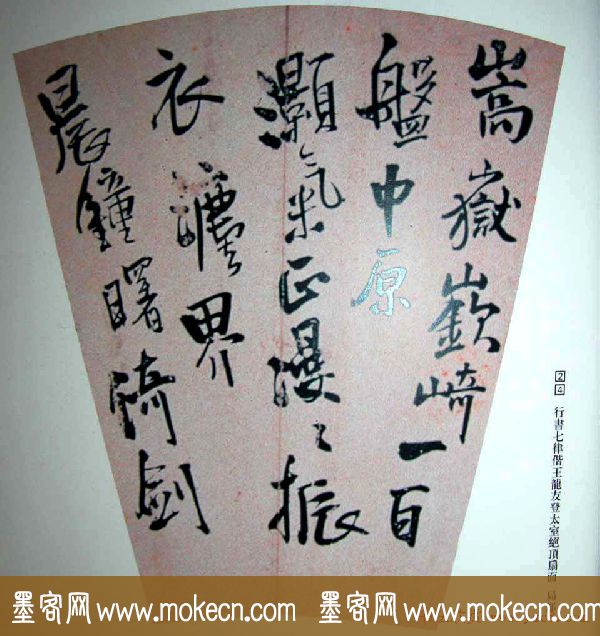 嵩嶽嶔崎一百
盤中原
灝氣正漫〻振
衣 界
晨鐘曙 劍
24 行書七律偕王龍友登太室絕頂扇面 局部
墨客网 www.mokecn.com 墨客网 www.mokecn.com